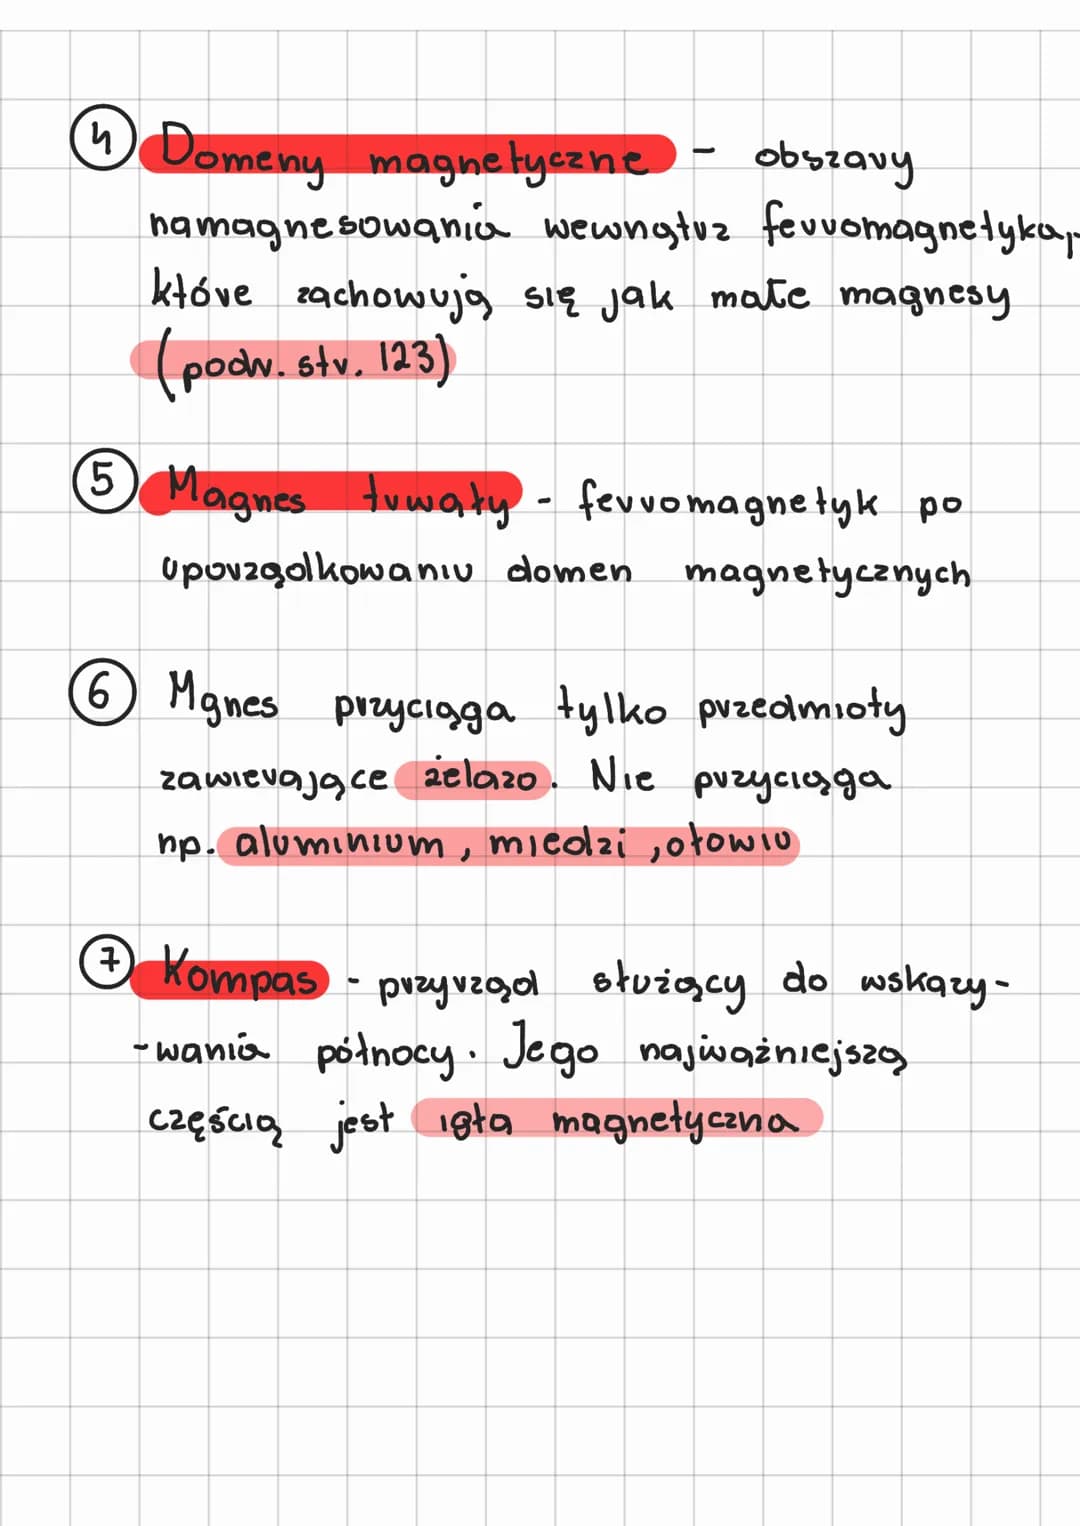 4 Domeny magnetyczne - obszary
namagnesowania wewnątrz ferromagnetyka,
które zachowują się jak małe magnesy
(podr. str. 123)
5 Magnes trwały - ferromagnetyk po
uporządkowaniu domen magnetycznych
6 Mgnes przyciąga tylko przedmioty
zawierające żelazo. Nie przyciąga
np. aluminium, miedzi, ołowiu
7 Kompas - przyrząd służący do wskazy-
-wania północy. Jego najważniejszą
częścią jest igła magnetyczna